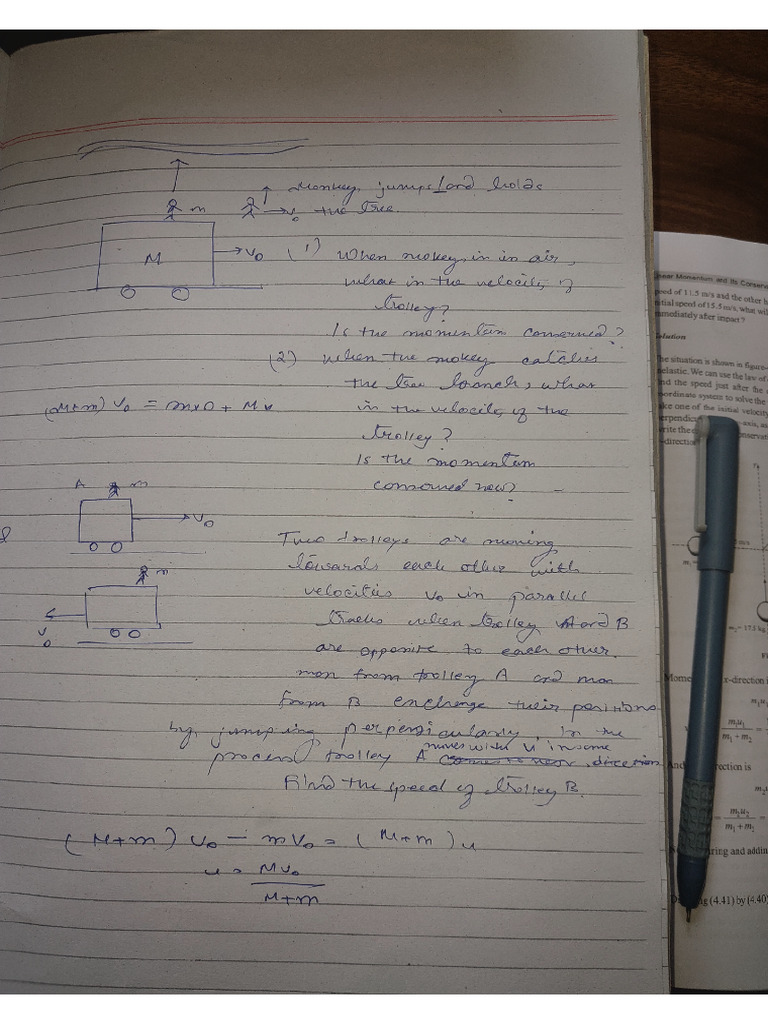 m
Monkey jumps and holds
v0 the tree.
M
v0
(1) When mokey is in air,
what is the velocity of
trolley?
Is the momentum conserved?
(2) when the mokey catches
the tree branch, what
(M+m) v0 = m×0 + Mv
is the velocity of the
trolley?
Is the momentum
conserved now?
A m
v0
m
v0
Two trolleys are moving
towards each other with
velocities v0 in parallel
tracks when trolley A and B
are opposite to each other.
man from trolley A and man
from B exchange their positions
by jumping perpendicularly. In the
process trolley A moves with u in same direction
Find the speed of trolley B.
(M+m) v0 - mv0 = (M+m) u
u = Mv0
M+m
near Momentum and Its Conserva
peed of 11.5 m/s and the other h
itial speed of 15.5 m/s, what wil
mmediately after impact?
olution
he situation is shown in figure-
nelastic. We can use the law of
nd the speed just after the
oordinate system to solve the
ake one of the initial velocity
erpendic -axis, as
write the e onservati
-directio
m/s
m2 = 17.5 kg
Mome x-direction i
m1u1
m1 + m2
And rection is
m2u2
m1 + m2
ring and addin
ng (4.41) by (4.40)